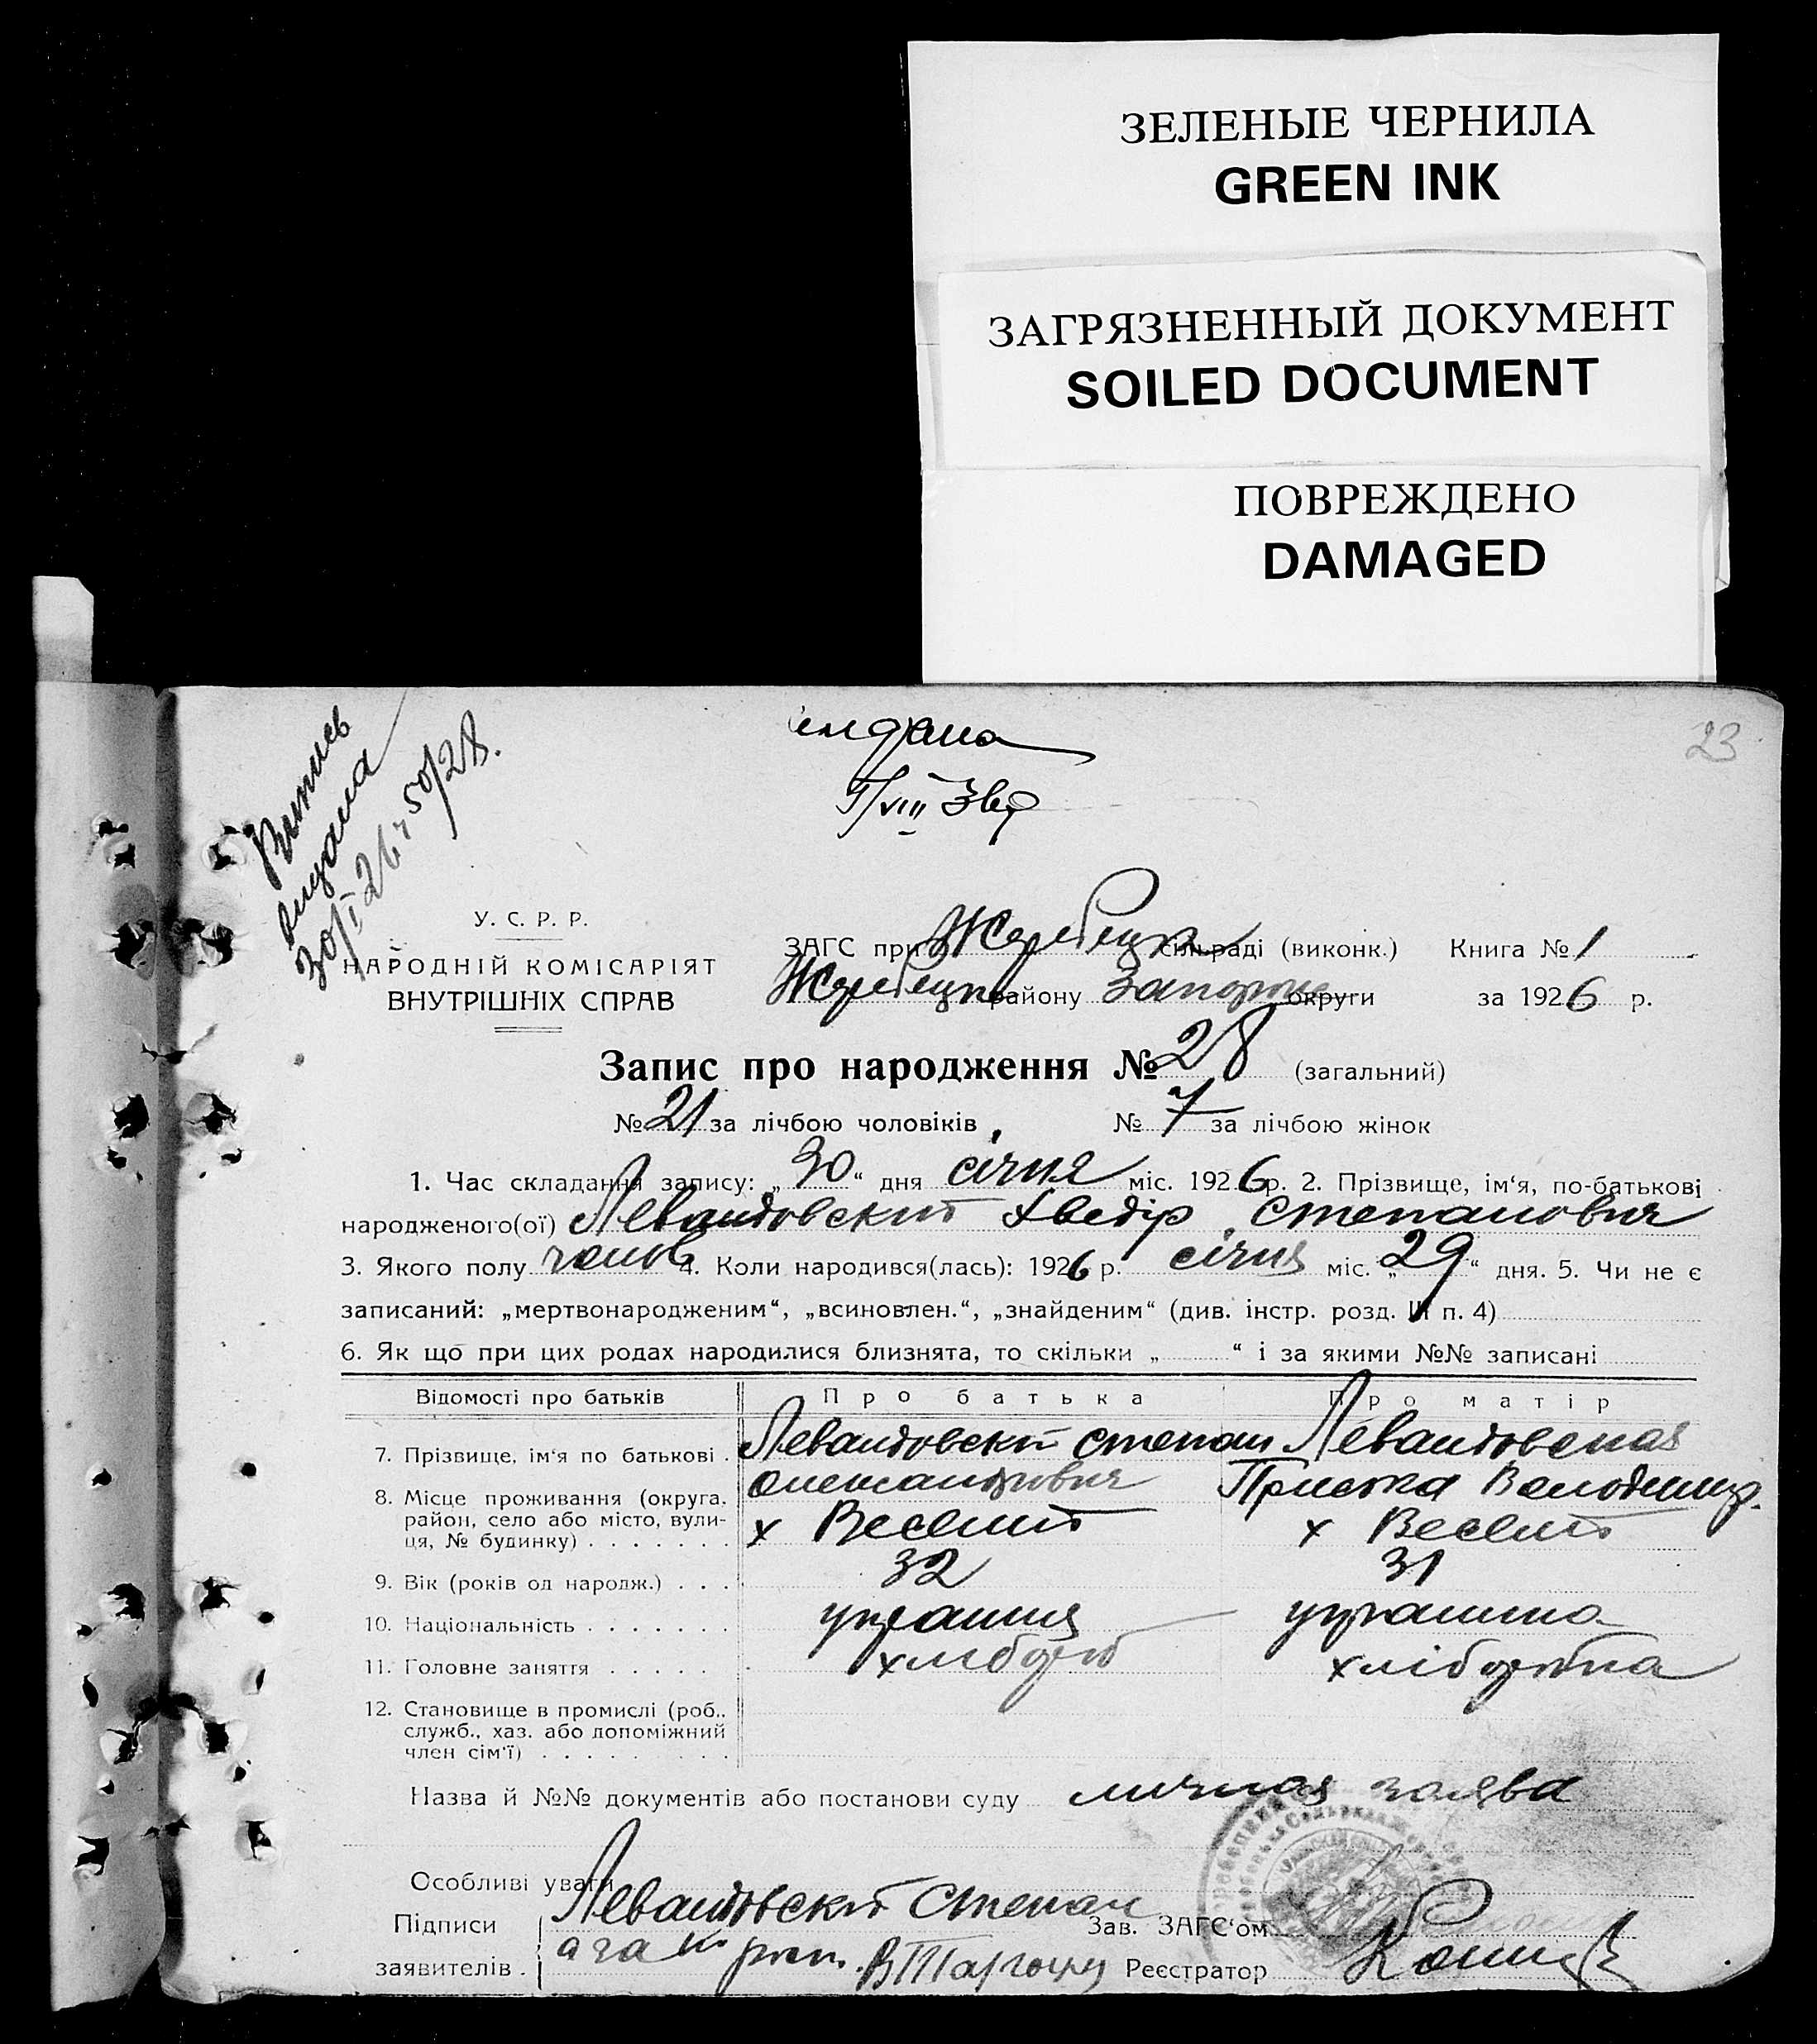 ЗЕЛЕНЫЕ ЧЕРНИЛА
GREEN INK
ЗАГРЯЗНЕННЫЙ ДОКУМЕНТ
SOILED DOCUMENT
ПОВРЕЖДЕНО
DAMAGED
23
Витись
видана
30/I 26 50/28.
У. С. Р. Р.
НАРОДНІЙ КОМІСАРІЯТ
ВНУТРІШНІХ СПРАВ
ЗАГС при Жеребецк сільраді (виконк.) Книга № 1
Жеребецк району Запорож округи за 1926 р.
Запис про народження № 28 (загальний)
№ 21 за лічбою чоловіків, № 7 за лічбою жінок
1. Час складання запису: „30“ дня січня міс. 1926 р. 2. Прізвище, ім‘я, по-батькові
народженого(ої) Левандовский Хведір Степанович
3. Якого полу чолов 4. Коли народився(лась): 1926 р. січня міс. „29“ дня. 5. Чи не є
записаний: „мертвонародженим“, „всиновлен.“, „знайденим“ (див. інстр. розд. III п. 4)
6. Як що при цих родах народилися близнята, то скільки „ “ і за якими №№ записані
Відомості про батьків Про батька Про матір
7. Прізвище, ім‘я по батькові . Левандовский Степан Левандовская
Олександрович Приська Володимир.
8. Місце проживання (округа,
район, село або місто, вули-
ця, № будинку) . . . . . . . х Веселий х Веселий
9. Вік (років од народж.) . . . 32 31
10. Національність . . . . . . . українця українка
11. Головне заняття . . . . . хлібороб хліборобка
12. Становище в промислі (роб.,
служб., хаз. або допоміжний
член сім‘ї) . . . . . . . . .
Назва й №№ документів або постанови суду личная заява
Особливі уваги
Підписи Левандовский Степан Зав. ЗАГС‘ом
заявителів . а за Реєстратор